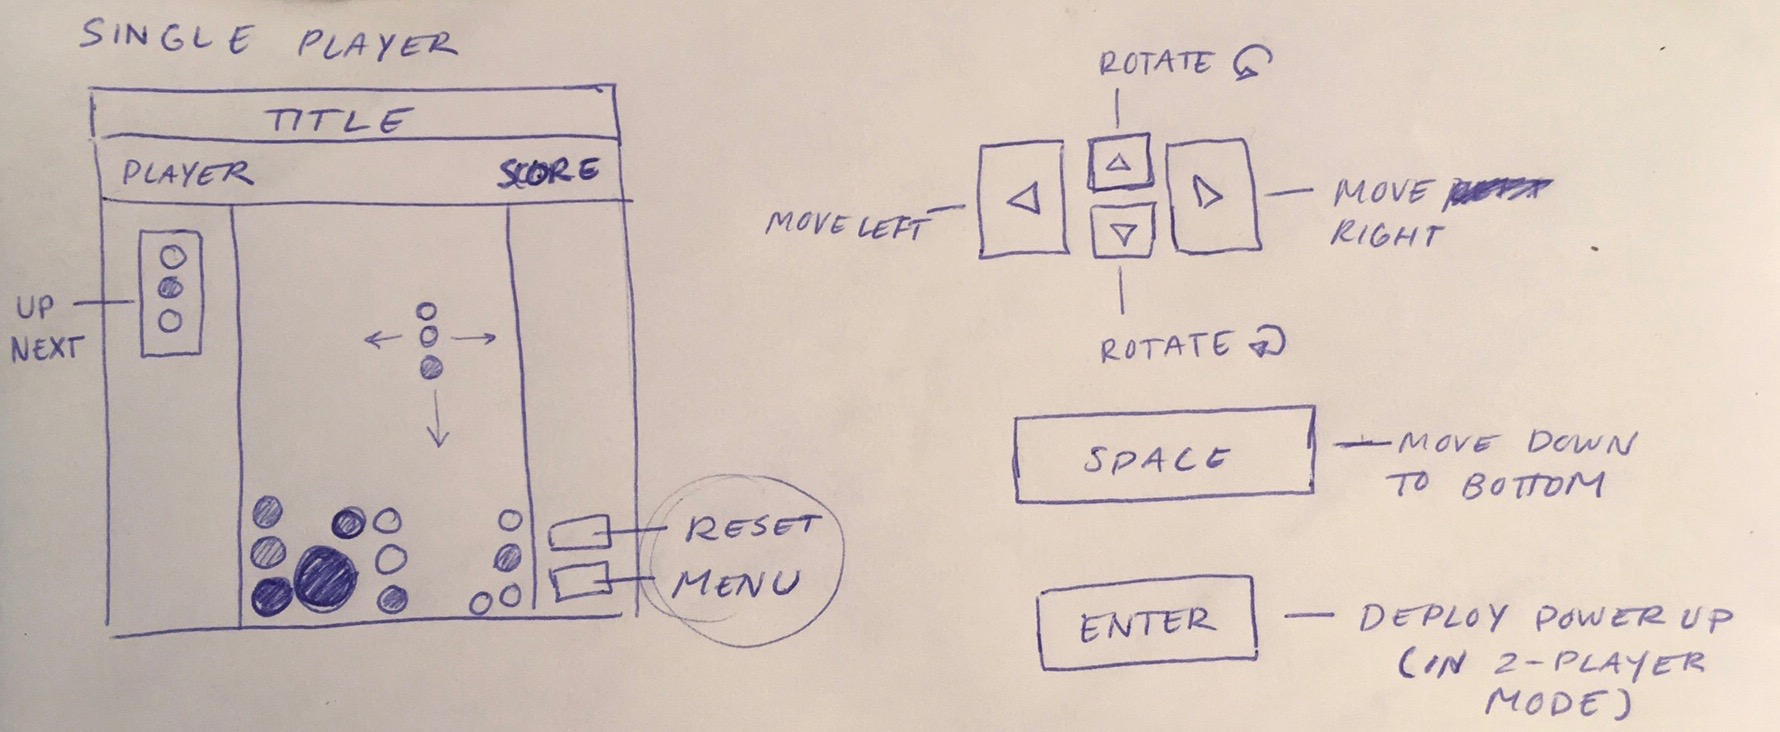 SINGLE PLAYER
TITLE
PLAYER SCORE
UP
NEXT
RESET
MENU
ROTATE
MOVE LEFT
MOVE
RIGHT
ROTATE
SPACE
MOVE DOWN
TO BOTTOM
ENTER
DEPLOY POWER UP
(IN 2-PLAYER
MODE)